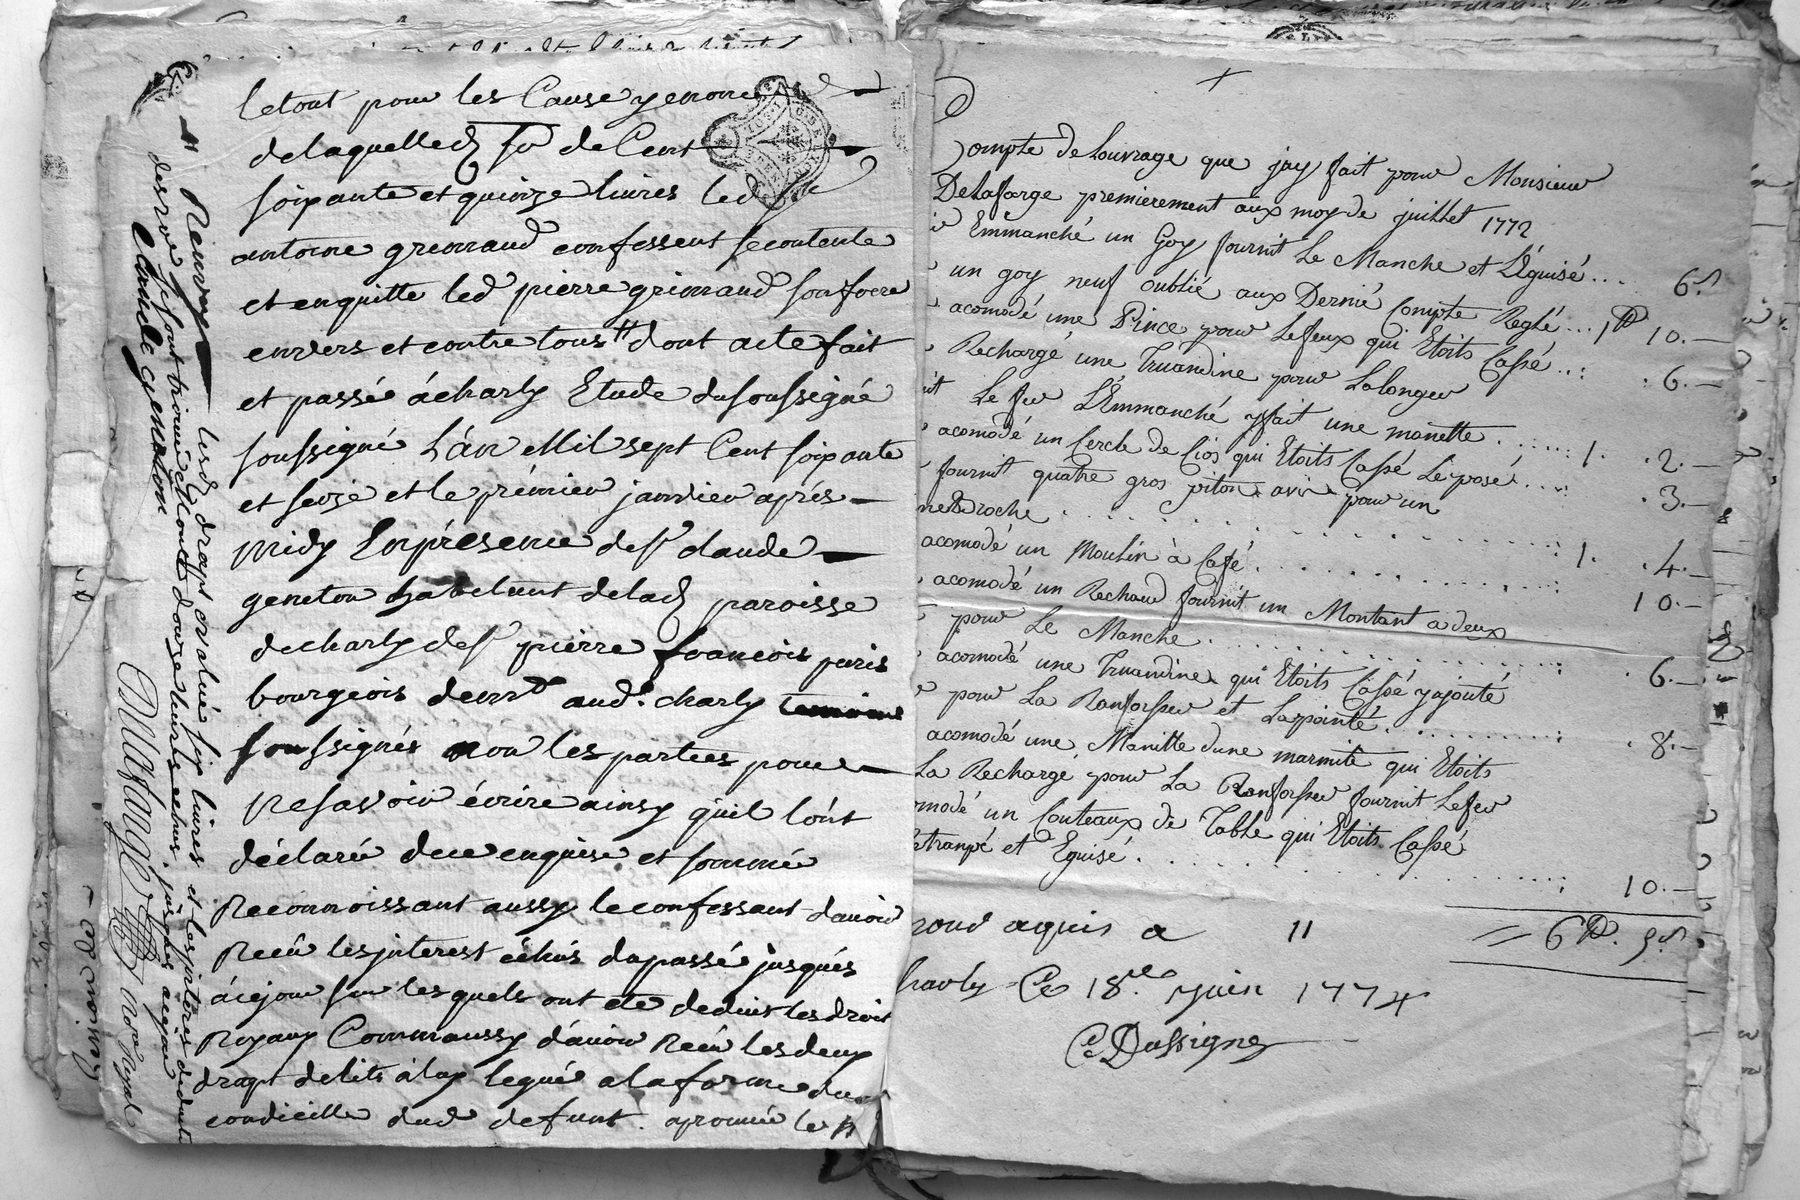 le tout pour les Cause y enonce
de laquelle d. so. de Cent
soixante et quinze livres led sr
antoine grimaud confessent se contente
et en quitte led pierre grimaud son frere
envers et contre tous dont acte fait
et passé á charly Etude du soussigné
soussigné L'án Mil sept Cent soixante
et seize et le prémier janvier aprés
midy En présence de sr claude
geneton habitant de lad paroisse
de charly de sr pierre francois paris
bourgeois demt aud. charly temoins
soussignés non les parties pour
ne savoir écrire ainsy qu'il l'ont
déclaré de ce enquise et sommé
Reconnoissant aussy le confessant d'avoir
Recû les jnterest échûs du passé jusqués
á ce jour sur les quels ont eté deduit les droit
Royaux Comm aussy d'avoir Recû les deux
draps de lits á luy legué a la forme du
condicille dud defunt. aprouvé le
Renvoy lesd draps evalué six livres et les jnteres deduit
des roy se sont trouvé Monté douze livres echus jusques a ce jour
Claude geneton
Delafarge
nore Royal
Compte de Louvrage que jay fait pour Monsieur
Delafarge premierement aux moy de juillet 1772
Emmanché un Goy fournit Le Manche et L'Eguisé... 6 s
un goy neuf oublié aux Dernié Compte Reglé... 1 tt 10.—
acomodé une Pince pour Lefeux qui Etoits Cassé... . 6.—
Rechargé une Truandine pour Lalonger
Le feu L'Emmanché yfait une manette..... 1. . 2.—
acomodé un Cercle de Cios qui Etoits Cassé Leposé... . 3.—
fournit quatre gros piton avir pour un
neBroche............ 1. . 4.—
acomodé un Moulin à Café............ 10.—
acomodé un Rechaud fournit un Montant a deux
pour Le Manche............ . 6.—
acomodé une Truandine qui Etoits Cassé yajouté
pour La Ranforsser et Lapointé............ . 8.—
acomodé une Manitte dune marmite qui Etoits
La Rechargé pour La Ranforsser fournit Lefeu
modé un Couteaux de Table qui Etoits Cassé
etranpé et Eguisé............ 10.—
= 6 tt. 5 s
pour aquis a
Charly Ce 18.e Juin 1774
C Dassigney